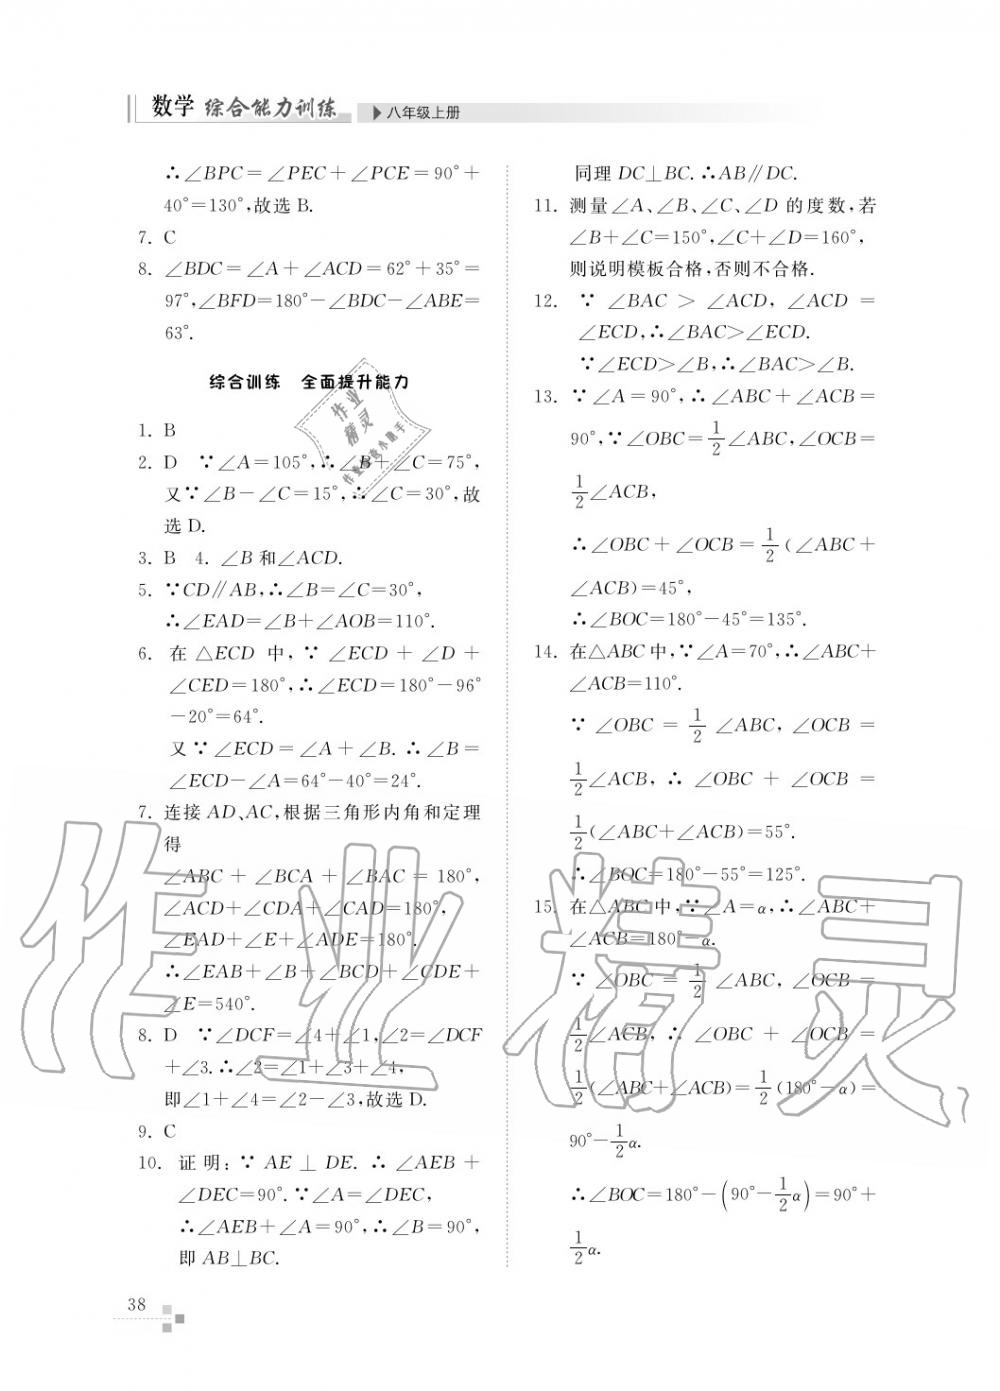 数学 综合能力训练 八年级上册
∴∠BPC=∠PEC+∠PCE=90°+
40°=130°,故选 B.
7. C
8. ∠BDC=∠A+∠ACD=62°+35°=
97°,∠BFD=180°-∠BDC-∠ABE=
63°.
综合训练 全面提升能力
1. B
2. D ∵∠A=105°,∴∠B+∠C=75°,
又∵∠B-∠C=15°,∴∠C=30°,故
选 D.
3. B 4. ∠B 和∠ACD.
5. ∵CD∥AB,∴∠B=∠C=30°,
∴∠EAD=∠B+∠AOB=110°.
6. 在△ECD 中,∵∠ECD+∠D+
∠CED=180°,∴∠ECD=180°-96°
-20°=64°.
又∵∠ECD=∠A+∠B.∴∠B=
∠ECD-∠A=64°-40°=24°.
7. 连接 AD、AC,根据三角形内角和定理
得
∠ABC+∠BCA+∠BAC=180°,
∠ACD+∠CDA+∠CAD=180°,
∠EAD+∠E+∠ADE=180°.
∴∠EAB+∠B+∠BCD+∠CDE+
∠E=540°.
8. D ∵∠DCF=∠4+∠1,∠2=∠DCF
+∠3.∴∠2=∠1+∠3+∠4,
即∠1+∠4=∠2-∠3,故选 D.
9. C
10. 证明:∵AE⊥DE.∴∠AEB+
∠DEC=90°.∵∠A=∠DEC,
∴∠AEB+∠A=90°,∴∠B=90°,
即 AB⊥BC.
同理 DC⊥BC.∴AB∥DC.
11. 测量∠A、∠B、∠C、∠D 的度数,若
∠B+∠C=150°,∠C+∠D=160°,
则说明模板合格,否则不合格.
12. ∵∠BAC>∠ACD,∠ACD=
∠ECD,∴∠BAC>∠ECD.
∵∠ECD>∠B,∴∠BAC>∠B.
13. ∵∠A=90°,∴∠ABC+∠ACB=
90°,∵∠OBC=1/2∠ABC,∠OCB=
1/2∠ACB,
∴∠OBC+∠OCB=1/2(∠ABC+
∠ACB)=45°,
∴∠BOC=180°-45°=135°.
14. 在△ABC 中,∵∠A=70°,∴∠ABC+
∠ACB=110°.
∵∠OBC=1/2∠ABC,∠OCB=
1/2∠ACB,∴∠OBC+∠OCB=
1/2(∠ABC+∠ACB)=55°.
∴∠BOC=180°-55°=125°.
15. 在△ABC 中,∵∠A=α,∴∠ABC+
∠ACB=180°-α.
∵∠OBC=1/2∠ABC,∠OCB=
1/2∠ACB,∴∠OBC+∠OCB=
1/2(∠ABC+∠ACB)=1/2(180°-α)=
90°-1/2α.
∴∠BOC=180°-(90°-1/2α)=90°+
1/2α.
38
作业精灵
作业
精灵